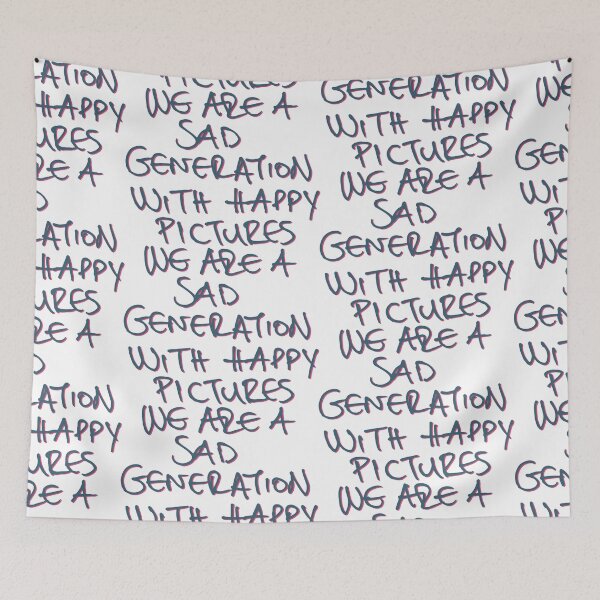 ATION
HAPPY
URES
RE A
D
ATION
HAPPY
URES
RE A
D
ATION
HAPPY
URES
RE A
PICTURES
WE ARE A
SAD
GENERATION
WITH HAPPY
PICTURES
WE ARE A
SAD
GENERATION
WITH HAPPY
PICTURES
WE ARE A
SAD
GENERATION
WITH HAPPY
GENERATION
WITH HAPPY
PICTURES
WE ARE A
SAD
GENERATION
WITH HAPPY
PICTURES
WE ARE A
SAD
GENERATION
WITH HAPPY
PICTURES
WE ARE A
SAD
WE
GEN
WIT
P
WE
GEN
WIT
P
WE
GEN
WIT